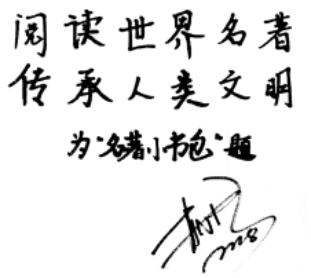 阅读世界名著
传承人类文明
为“名著小书包”题